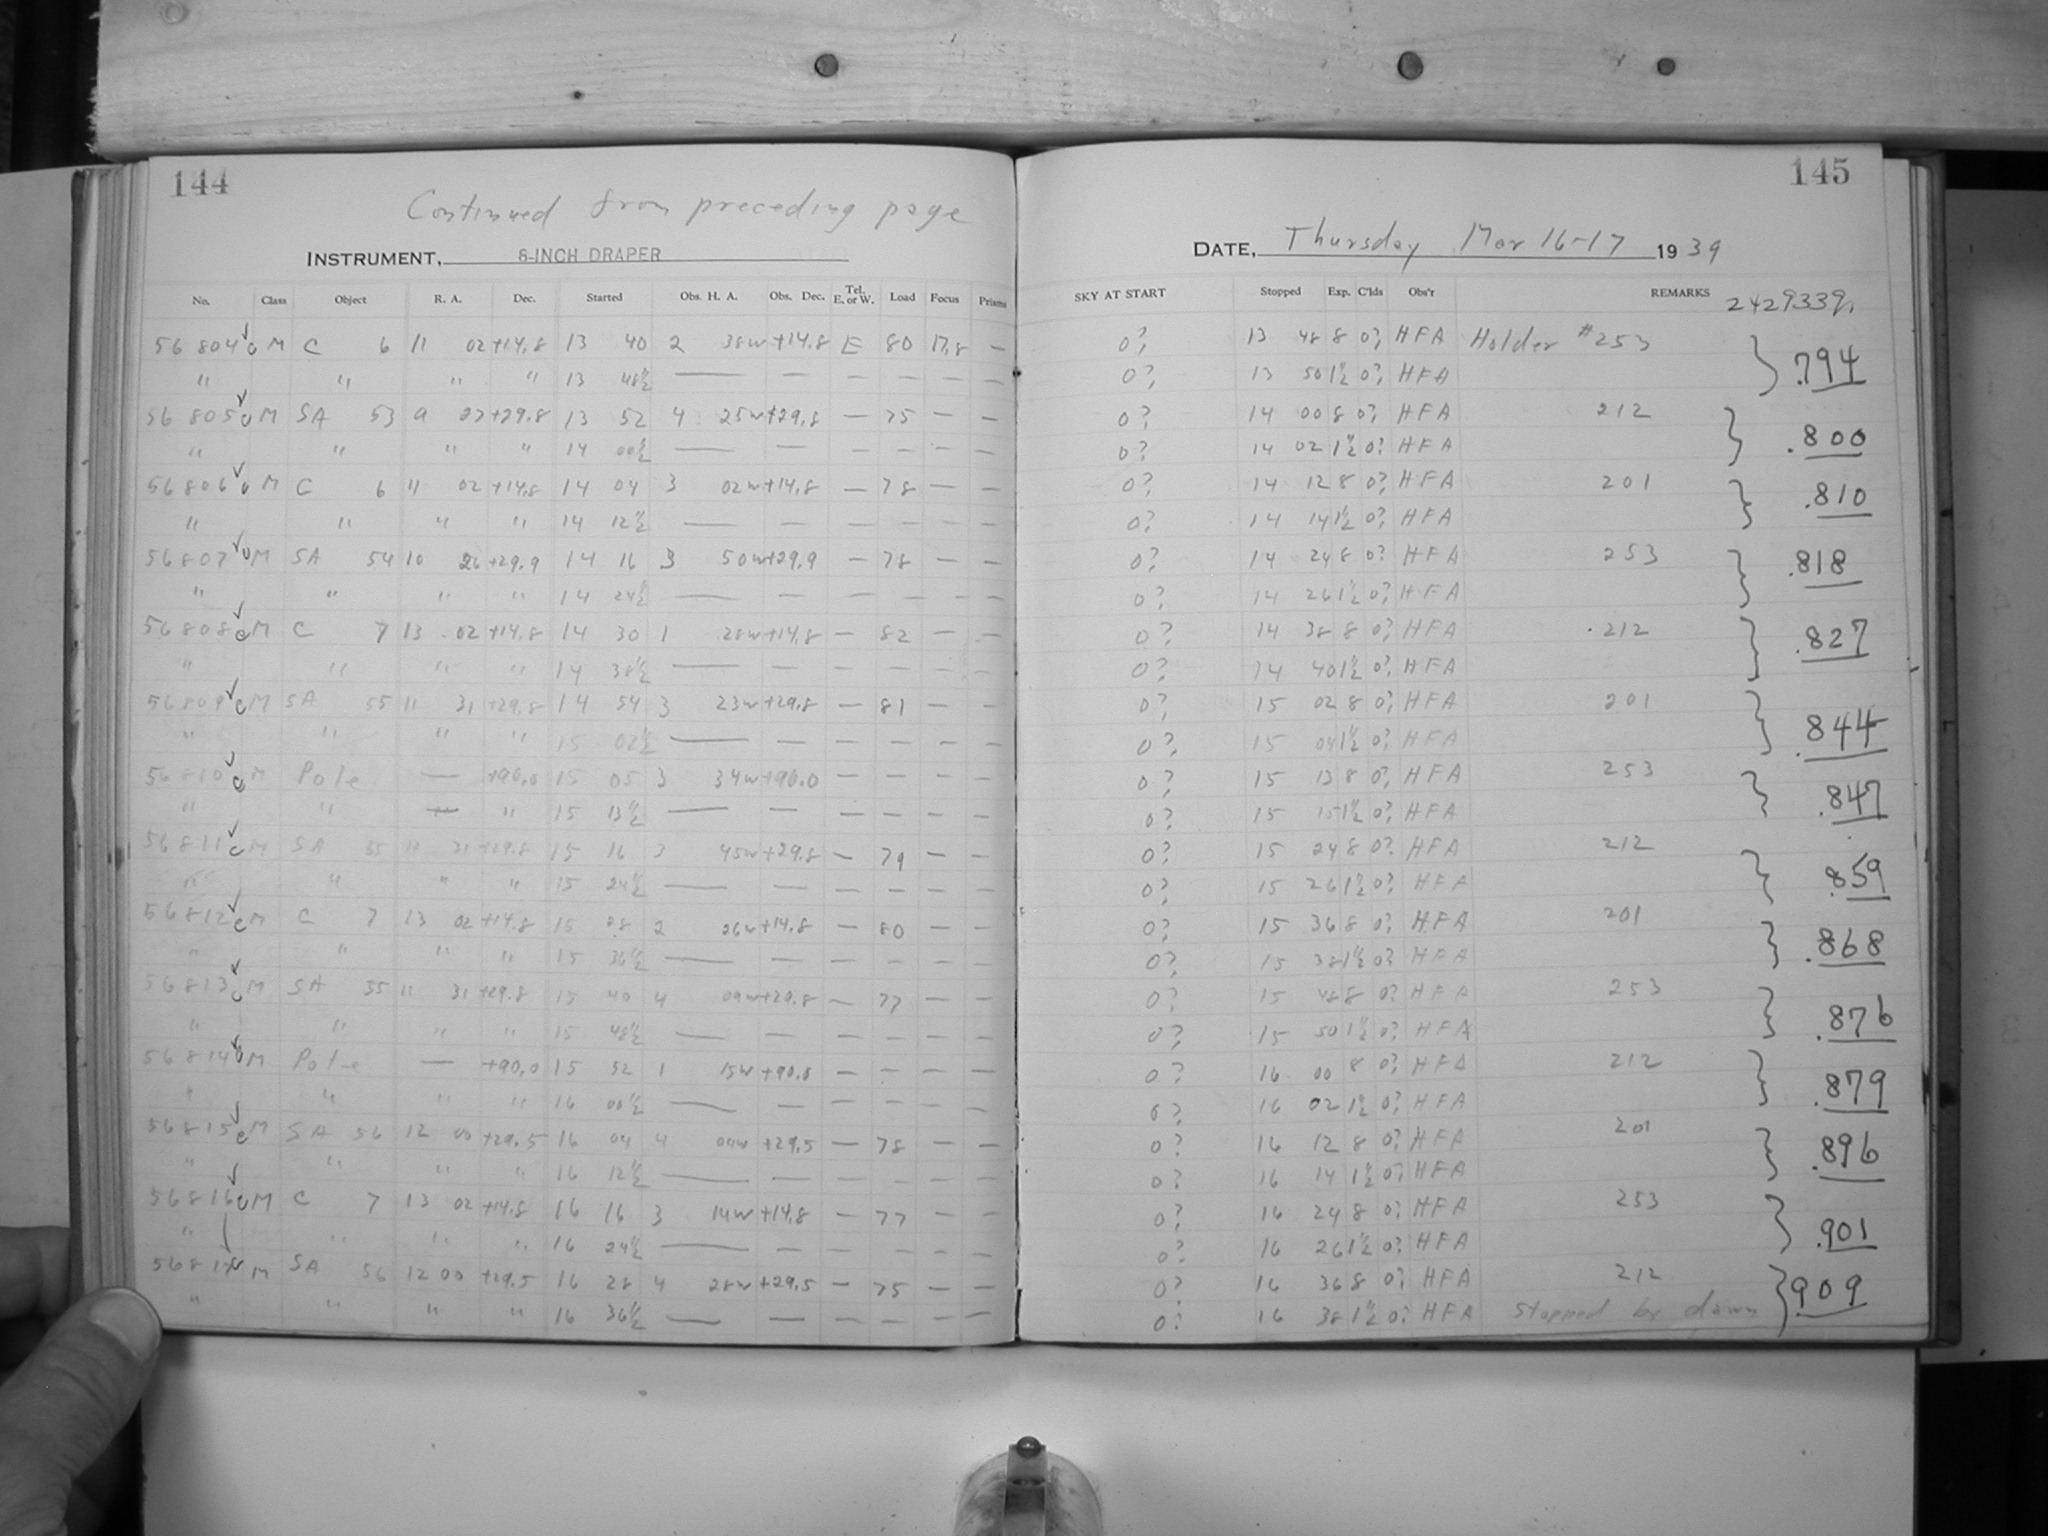 144
Continued from preceding page
INSTRUMENT, 8-INCH DRAPER
No. Class Object R. A. Dec. Started Obs. H. A. Obs. Dec. Tel. E. or W. Load Focus Prisms
56 804 c M C 6 11 02 +14.8 13 40 2 38w +14.8 E 80 17.8 —
" " " " 13 48½ — — — — — —
56 805 c M SA 53 9 27 +29.8 13 52 4 25w +29.8 — 75 — —
" " " " 14 00½ — — — — — —
56 806 c M C 6 11 02 +14.8 14 04 3 02w +14.8 — 78 — —
" " " " 14 12½ — — — — — —
56 807 c M SA 54 10 26 +29.9 14 16 3 50w +29.9 — 78 — —
" " " " 14 24½ — — — — — —
56 808 c M C 7 13 02 +14.8 14 30 1 28w +14.8 — 82 — —
" " " " 14 38½ — — — — — —
56 809 c M SA 55 11 31 +29.8 14 54 3 23w +29.8 — 81 — —
" " " " 15 02½ — — — — — —
56 810 c M Pole — +90.0 15 05 3 34w +90.0 — — — —
" " — " 15 13½ — — — — — —
56 811 c M SA 55 11 31 +29.8 15 16 3 45w +29.8 — 79 — —
" " " " 15 24½ — — — — — —
56 812 c M C 7 13 02 +14.8 15 28 2 26w +14.8 — 80 — —
" " " " 15 36½ — — — — — —
56 813 c M SA 55 11 31 +29.8 15 40 4 09w +29.8 — 77 — —
" " " " 15 48½ — — — — — —
56 814 c M Pole — +90.0 15 52 1 15w +90.0 — — — —
" " " " 16 00½ — — — — — —
56 815 c M SA 56 12 00 +29.5 16 04 4 04w +29.5 — 78 — —
" " " " 16 12½ — — — — — —
56 816 c M C 7 13 02 +14.8 16 16 3 14w +14.8 — 77 — —
" " " " 16 24½ — — — — — —
56 817 c M SA 56 12 00 +29.5 16 28 4 28w +29.5 — 75 — —
" " " " 16 36½ — — — — — —
145
DATE, Thursday Mar 16-17 1939
SKY AT START Stopped Exp. C'lds Obs'r REMARKS 2429339.
0? 13 48 8 0? HFA Holder #253 .794
0? 13 50 1½ 0? HFA
0? 14 00 8 0? HFA 212 .800
0? 14 02 1½ 0? HFA
0? 14 12 8 0? HFA 201 .810
0? 14 14 1½ 0? HFA
0? 14 24 8 0? HFA 253 .818
0? 14 26 1½ 0? HFA
0? 14 38 8 0? HFA 212 .827
0? 14 40 1½ 0? HFA
0? 15 02 8 0? HFA 201 .844
0? 15 04 1½ 0? HFA
0? 15 13 8 0? HFA 253 .847
0? 15 15 1½ 0? HFA
0? 15 24 8 0? HFA 212 .859
0? 15 26 1½ 0? HFA
0? 15 36 8 0? HFA 201 .868
0? 15 38 1½ 0? HFA
0? 15 48 8 0? HFA 253 .876
0? 15 50 1½ 0? HFA
0? 16 00 8 0? HFA 212 .879
0? 16 02 1½ 0? HFA
0? 16 12 8 0? HFA 201 .896
0? 16 14 1½ 0? HFA
0? 16 24 8 0? HFA 253 .901
0? 16 26 1½ 0? HFA
0? 16 36 8 0? HFA 212 .909
0? 16 38 1½ 0? HFA Stopped by dawn